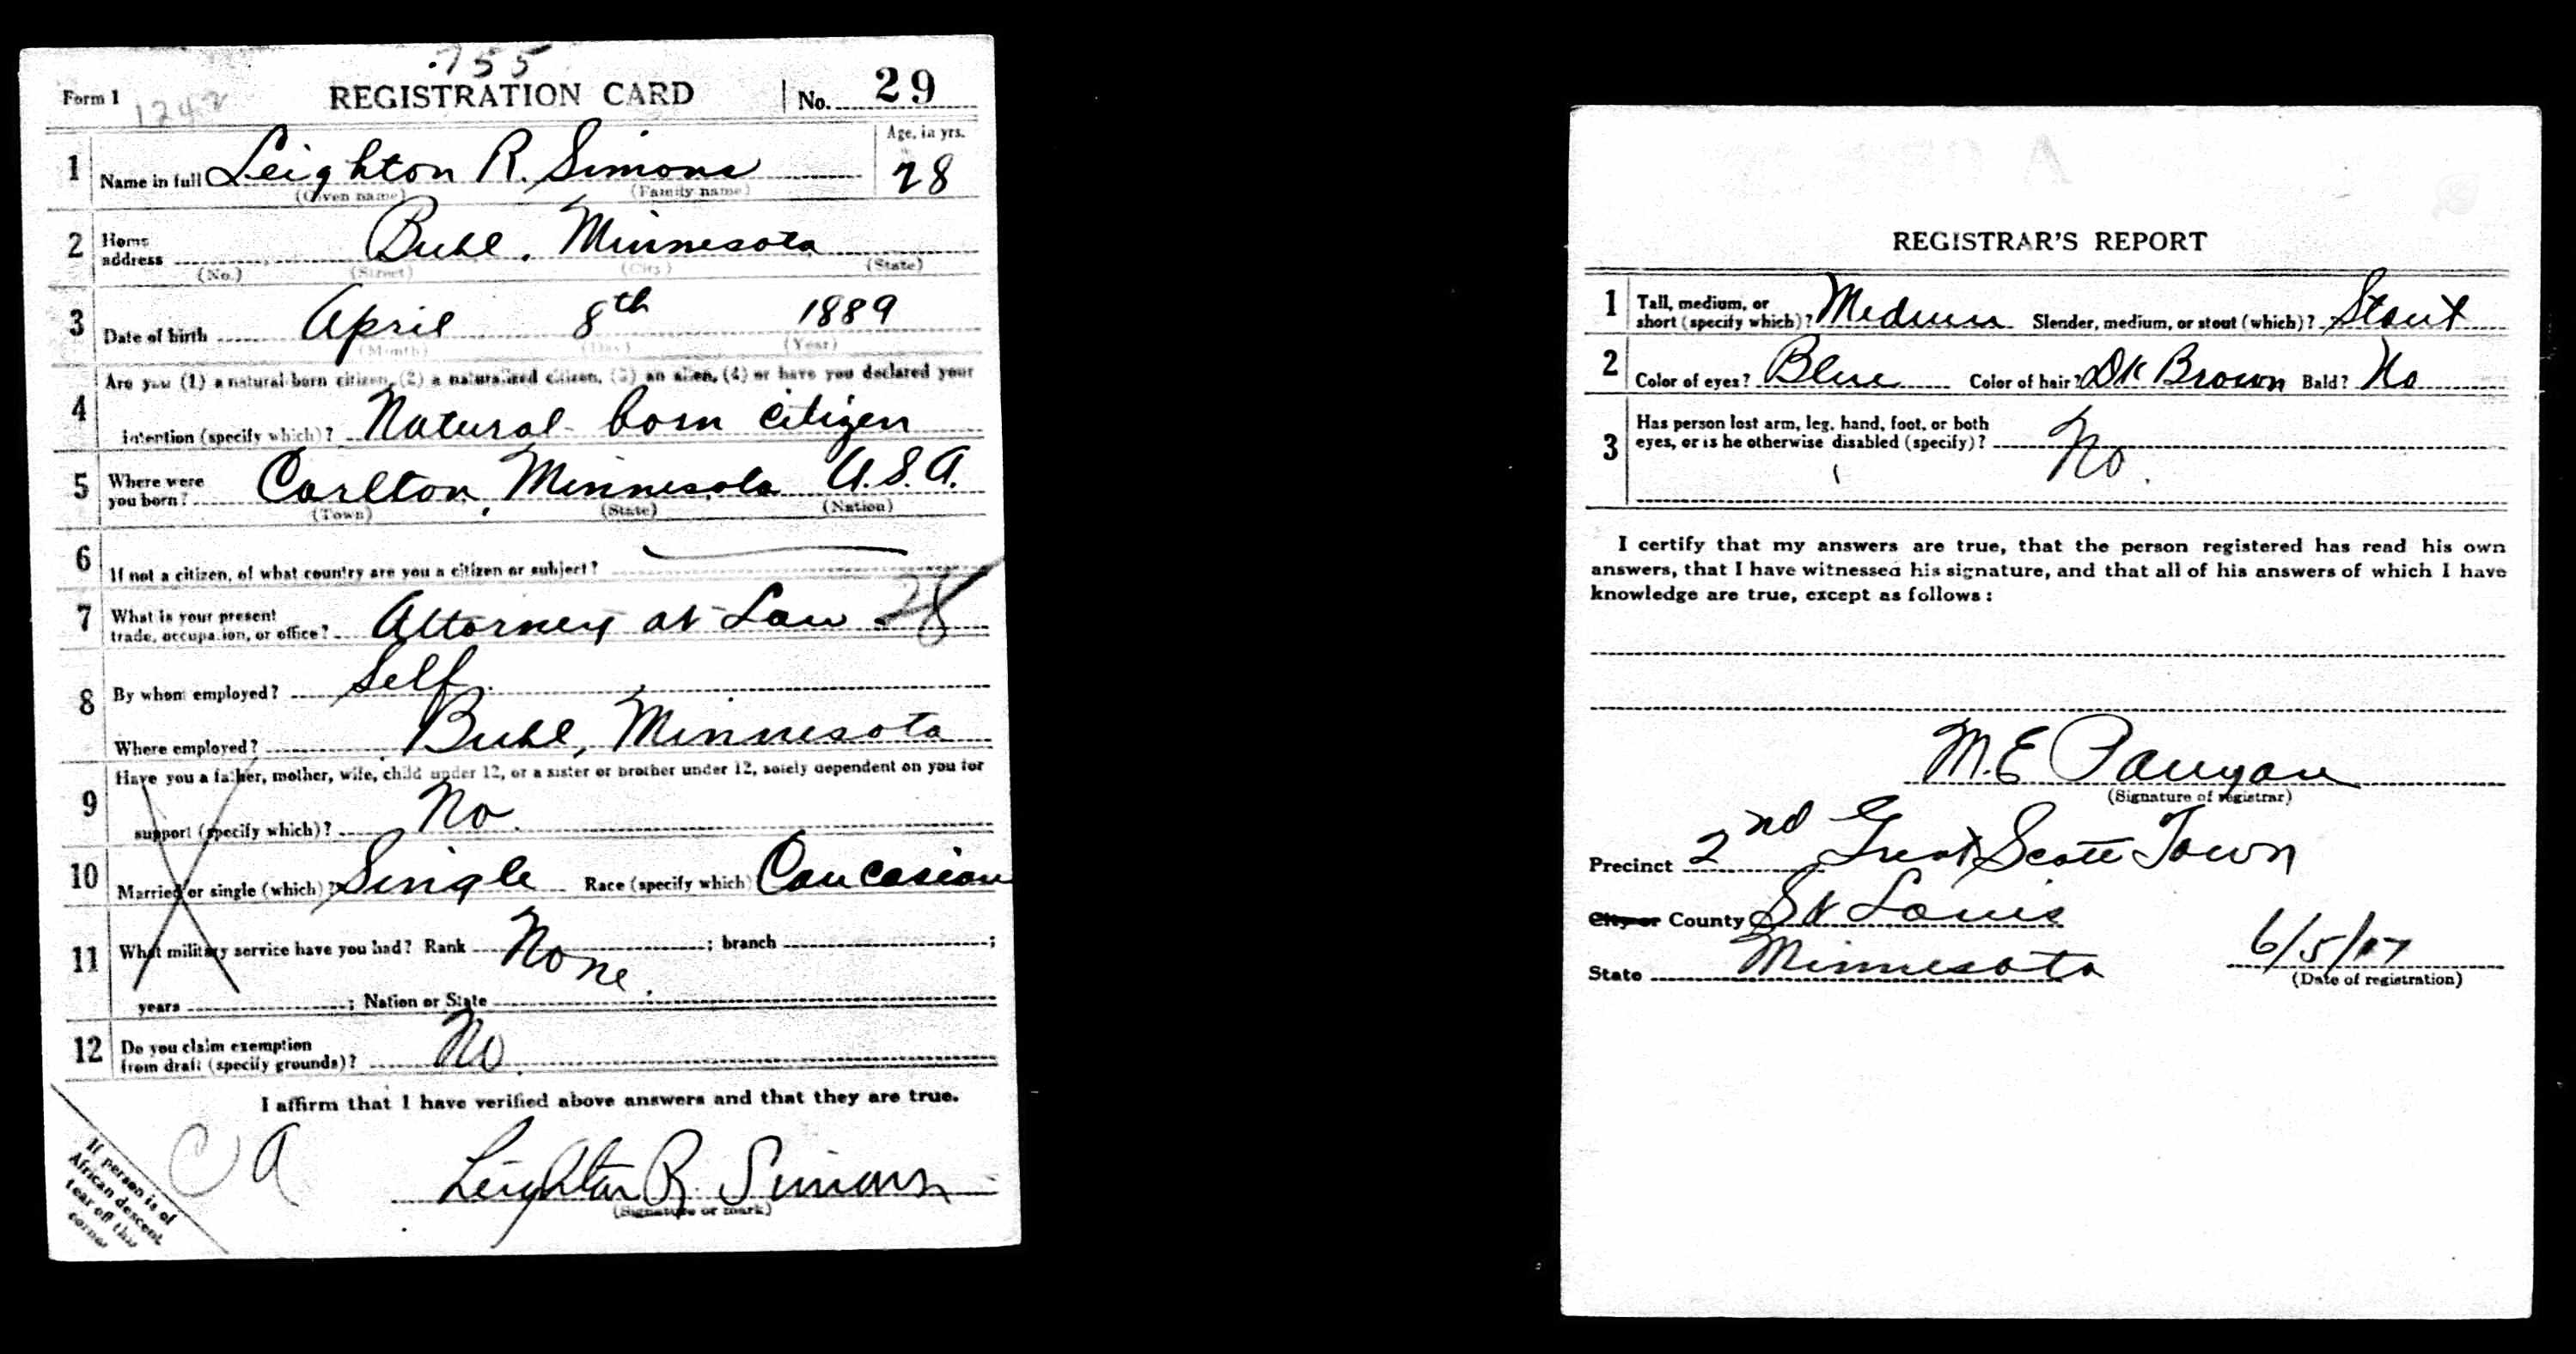 755
Form 1 1242 REGISTRATION CARD No. 29
1 Name in full Leighton R. Simons Age, in yrs. 28
(Given name) (Family name)
2 Home address Buhl, Minnesota
(No.) (Street) (City) (State)
3 Date of birth April 8th 1889
(Month) (Day) (Year)
Are you (1) a natural-born citizen, (2) a naturalized citizen, (3) an alien, (4) or have you declared your
4 intention (specify which)? Natural born citizen
5 Where were you born? Carlton, Minnesota U.S.A.
(Town) (State) (Nation)
6 If not a citizen, of what country are you a citizen or subject?
7 What is your present trade, occupation, or office? Attorney at Law 28
8 By whom employed? Self.
Where employed? Buhl, Minnesota
Have you a father, mother, wife, child under 12, or a sister or brother under 12, solely dependent on you for
9 support (specify which)? No.
10 Married or single (which)? Single Race (specify which) Caucasian
11 What military service have you had? Rank None. ; branch ;
years ; Nation or State
12 Do you claim exemption from draft (specify grounds)? No.
I affirm that I have verified above answers and that they are true.
If person is of
African descent,
tear off this
corner
C A
Leighton R. Simons
(Signature or mark)
REGISTRAR'S REPORT
1 Tall, medium, or short (specify which)? Medium Slender, medium, or stout (which)? Stout
2 Color of eyes? Blue Color of hair? Dk Brown Bald? No
3 Has person lost arm, leg, hand, foot, or both
eyes, or is he otherwise disabled (specify)? No.
I certify that my answers are true, that the person registered has read his own
answers, that I have witnessed his signature, and that all of his answers of which I have
knowledge are true, except as follows:
M. E.
(Signature of registrar)
Precinct 2nd Great Scott Town
City or County St Louis
State Minnesota 6/5/17
(Date of registration)